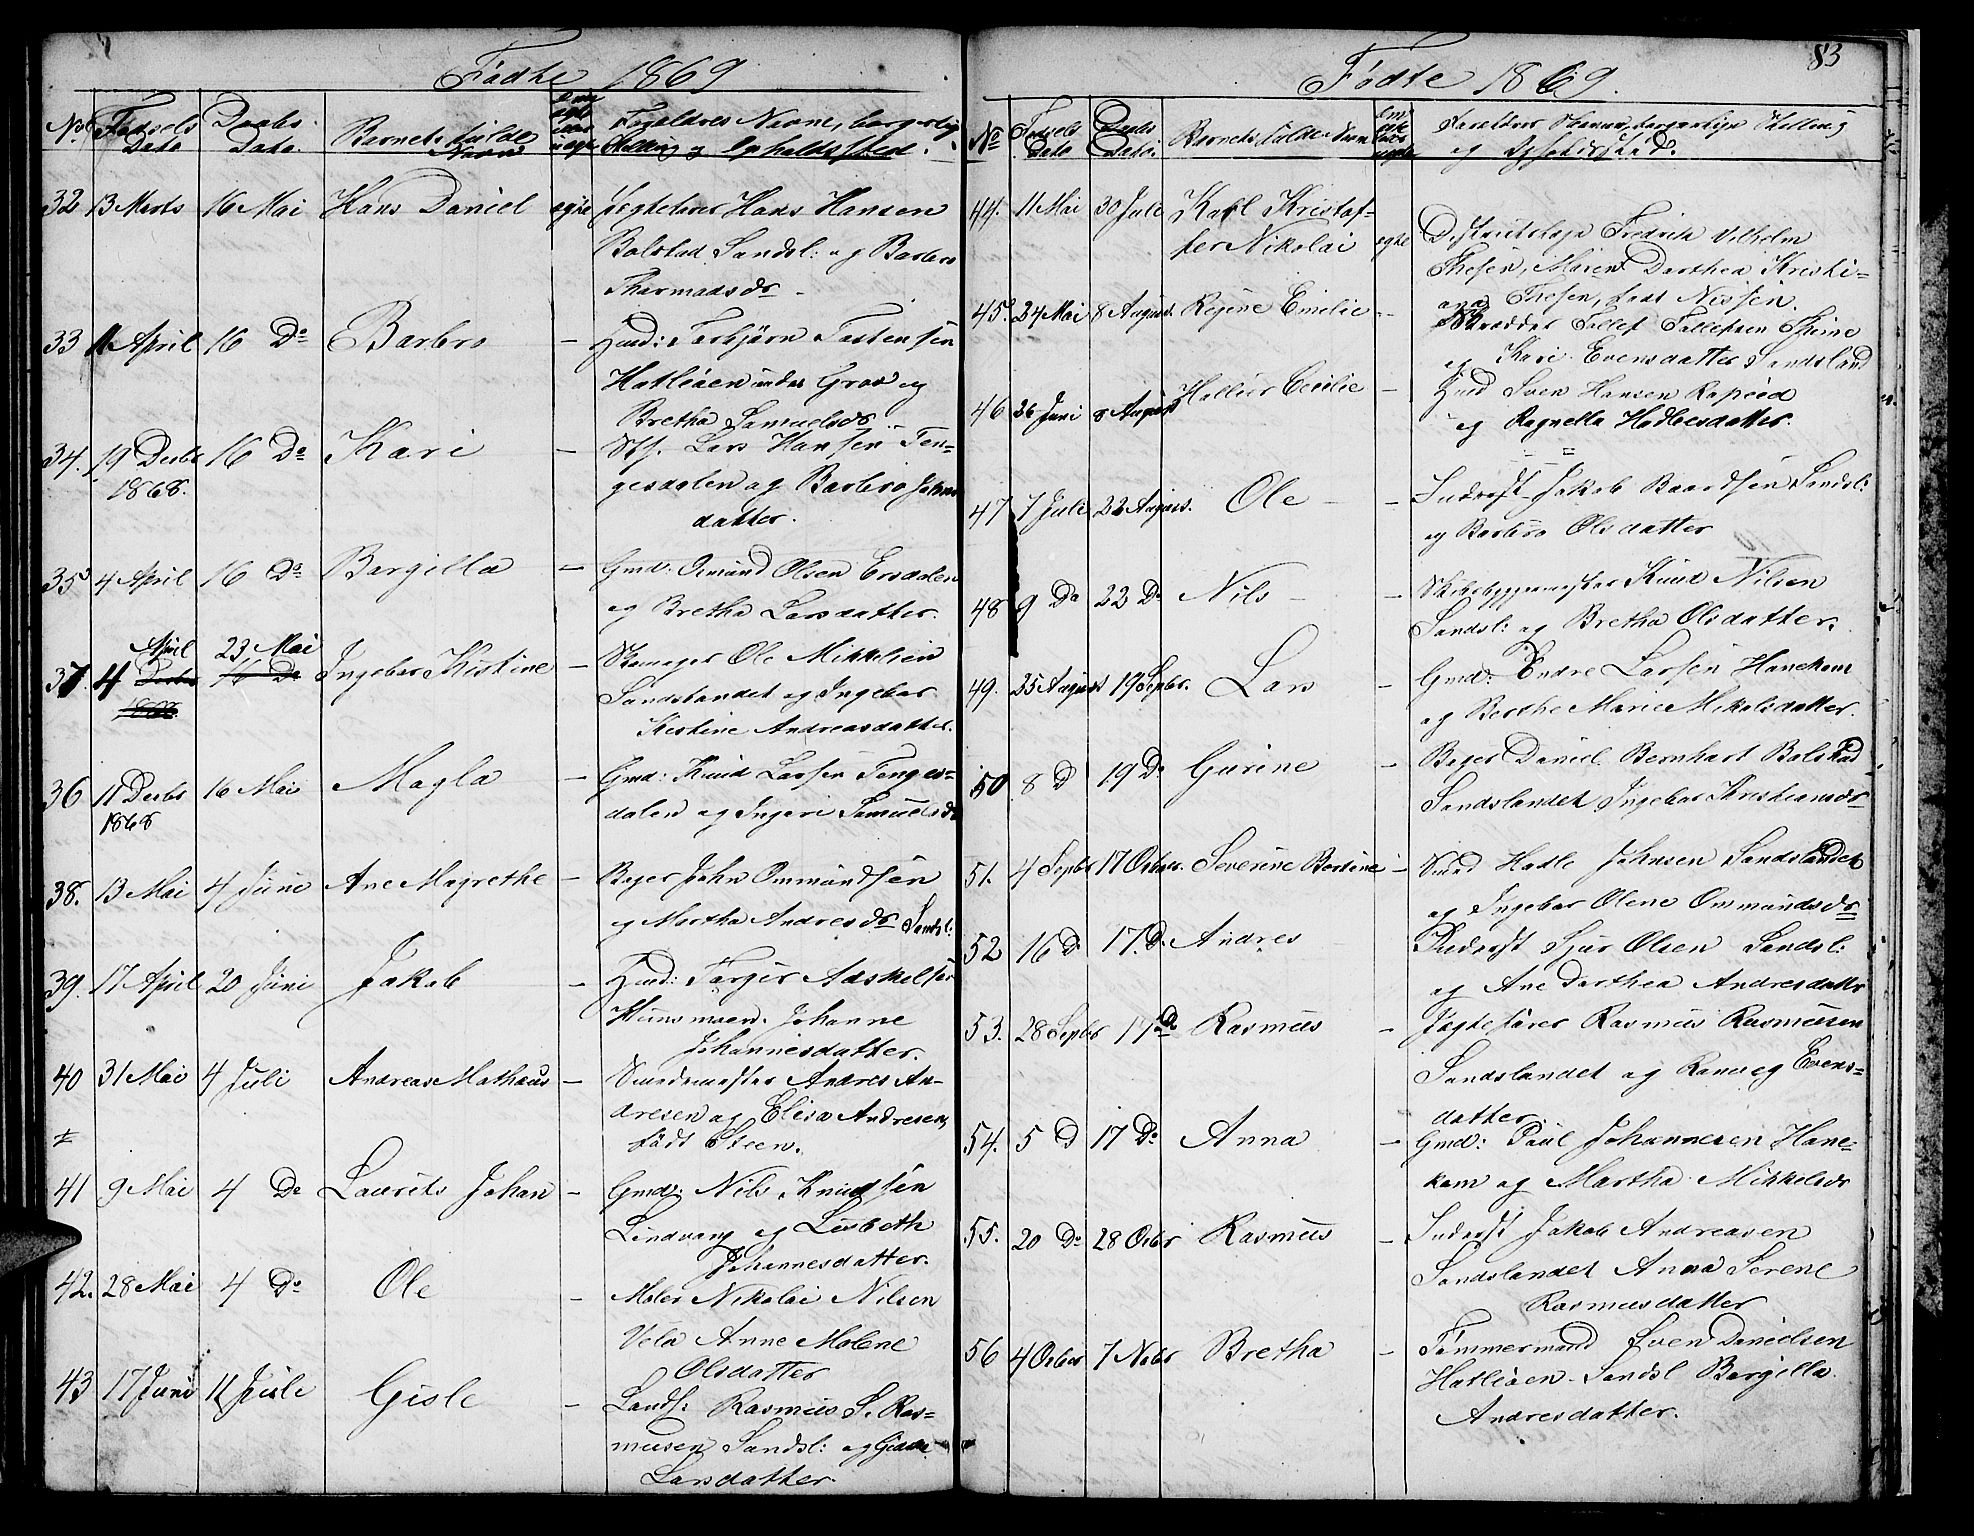 Fødte 1869
No Fødsels Dato Daabs Dato. Barnets fulde Navn Forældres Navne, borgerlig
Stilling og Opholdssted.
32 13 Marts 16 Mai Hans Daniel egte Jægtefører Hans Hansen
Bolstad Sandsl: og Barbro
Thormodsdr
33 11 April 16 Do Barbro — Hmd: Torbjørn Tostensen
Hatløen under Grov og
Bretha Samuelsdr
34. 19 Decbr 16 Do Kari — Lars Hansen Ten-
1868. gesdalen og Barbro Johns
datter.
35 4 April 16 Do Bargilla — Gmd: Osmund Olsen Ersdalen
og Bretha Larsdatter.
April 23 Mai
37. 4 Decbr 16 Do Ingebor Kistine — Skomager Ole Mikkelsen
1868. Sandslandet og Ingebor
Kistine Andreasdatter.
36 11 Decbr 16 Mai Magla — Gmd: Knud Larsen Tenges-
1868 dalen og Ingeri Samuelsdr
38. 13 Mai 4 June Ane Magrethe — Bager John Ommundsen
og Martha Andresdr Sandsl:
39. 17 April 20 Juni Jakob — Hmd: Torger Adskelsen
Hunsmoen. Johanne
Johannesdatter.
40 31 Mai 4 Juli Andreas Mathæus — Andres An-
dresen og Elisa Andresen,
født Steen.
41 9 Mai 4 Do Laurits Johan — Gmd: Nils Knudsen
Lindvang og Lisbeth
Johannesdatter.
42. 28 Mai 4 Do Ole — Maler Nikolai Nilsen
Vela Anne Malene
Olsdatter
43 17 Juni 11 Juli Gisle — Landh: Rasmus S. Ras-
musen Sandsl: og
Larsdatter.
83
Fødte 1869.
No Fødsels Dato Daabs Dato. Barnets fulde Navn Forældres Navne, borgerlige Stilling
og Opholdssted.
44. 11 Mai 30 Juli Karl Kristof- Distriktslæge Fredrik Vilhelm
fer Nikolai egte Thesen, Maren Dorthea Kristi-
ana Thesen, født Nissen.
45. 24 Mai 8 August. Regine Emelie — Skrædder Tollef Tollefsen Theime
og Kari Evensdatter Sandsland
46 26 Juni 8 August Emilie — Hmd Sven Hansen
og Ragnella Hadlesdatter.
47 7 Juli 22 August. Ole — Inderst Jakob Baardsen Sandsl:
og Barbro Olsdatter
48 9 Do 22 Do Nils — Skibsbyggemester Knud Nilsen
Sandsl: og Bretha Olsdatter.
49. 25 August 19 Septbr. Lars — Gmd: Endre Larsen Hanekam
og Berthe Marie Mikalsdatter.
50 8 D 19 Do Gurine — Bager Daniel Bernhart Bolstad
Sandslandet Ingebor Kristiansdr
51. 4 Septbr 17 Octbr. Severine Bertine — Smed Hatle Johnsen Sandslandet
og Ingebor Olene Ommundsdr
52 16 D 17. D. Andres Inderst Sjur Olsen Sandsl:
og Ane Dorthea Andresdatter
53. 28 Septbr 17 Do Rasmus — Jægtefører Rasmus Rasmusen
Sandslandet og Ranveg Evens-
datter.
54. 5 D 17 Do Anna — Gmd: Paul Johannesen Hane-
kam og Martha Mikkelsdr
55. 20 Do 28 Octbr Rasmus — Inderst Jakob Andreasen
Sandslandet Anna Serene
Rasmusdatter
56 4 Octbr 7 Nobr Bretha — Tømmermand Sven Danielsen
Hatløen Sandsl Bargilla
Andresdatter.